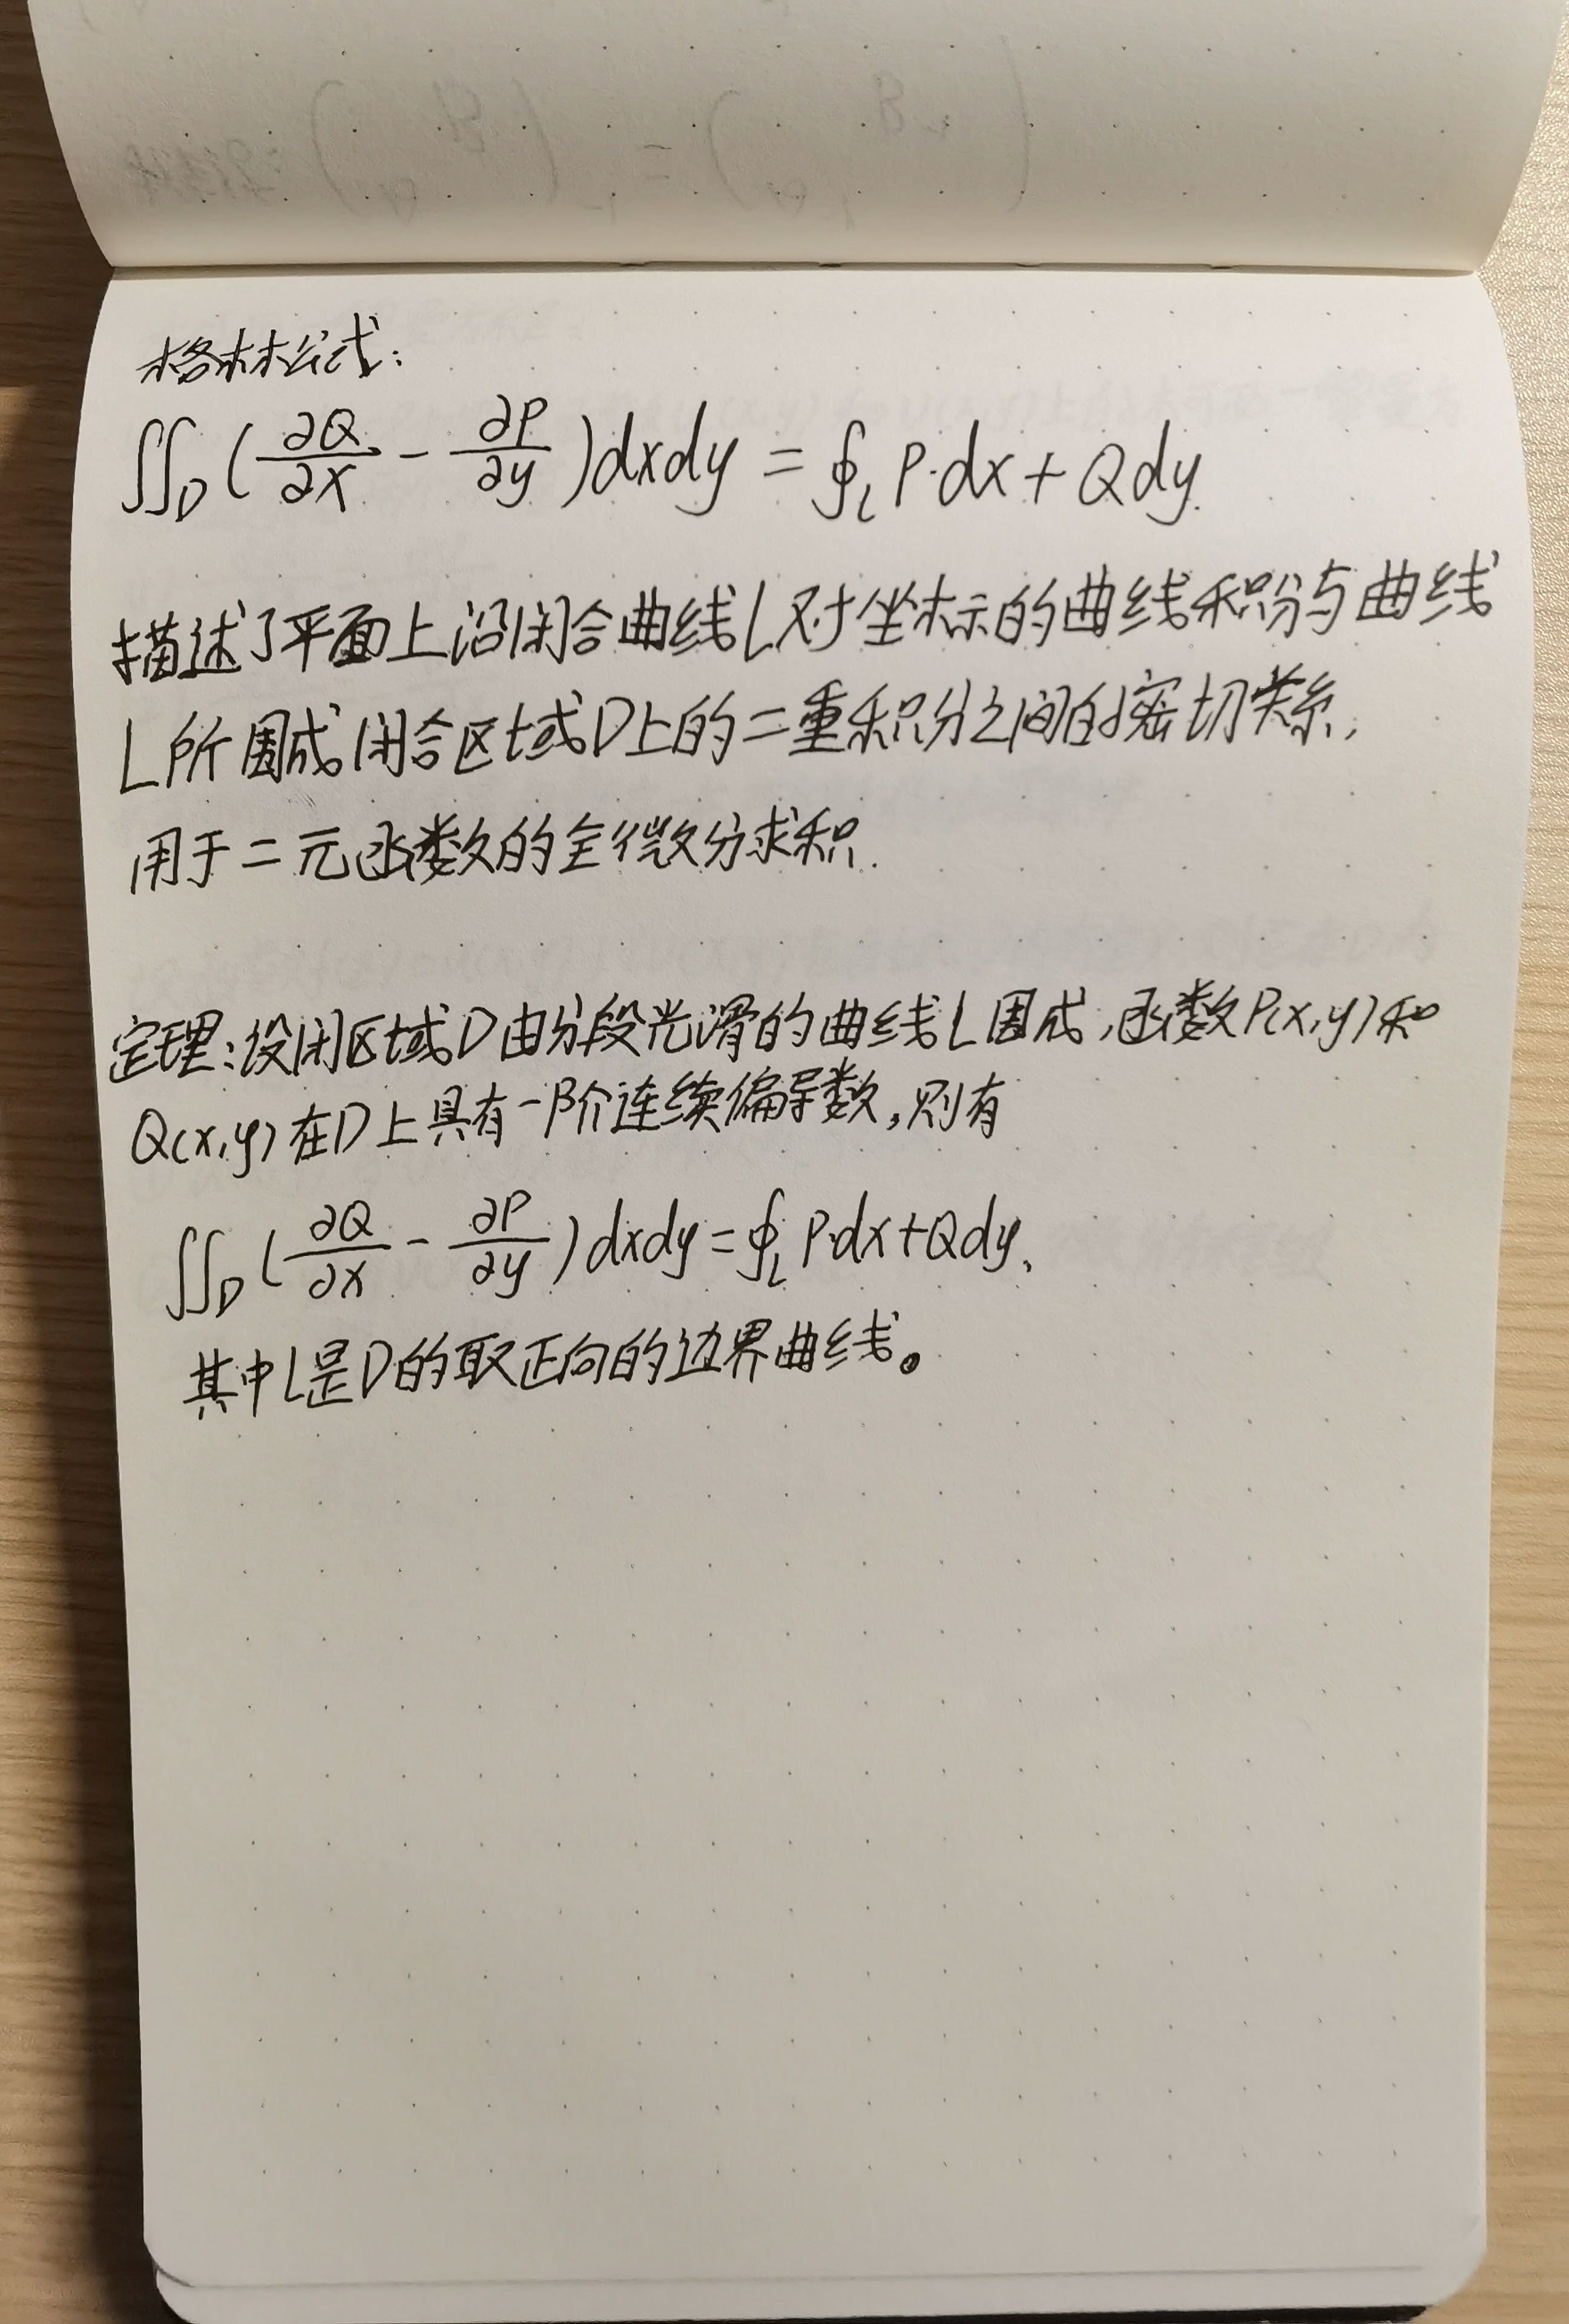 格林公式:
∬_D (∂Q/∂x - ∂P/∂y) dxdy = ∮_L P·dx + Qdy.
描述了平面上沿闭合曲线L对坐标的曲线积分与曲线
L所围成闭合区域D上的二重积分之间的密切关系,
用于二元函数的全微分求积.
定理:设闭区域D由分段光滑的曲线L围成,函数P(x,y)和
Q(x,y)在D上具有一阶连续偏导数,则有
∬_D (∂Q/∂x - ∂P/∂y) dxdy = ∮_L P·dx+Qdy,
其中L是D的取正向的边界曲线。